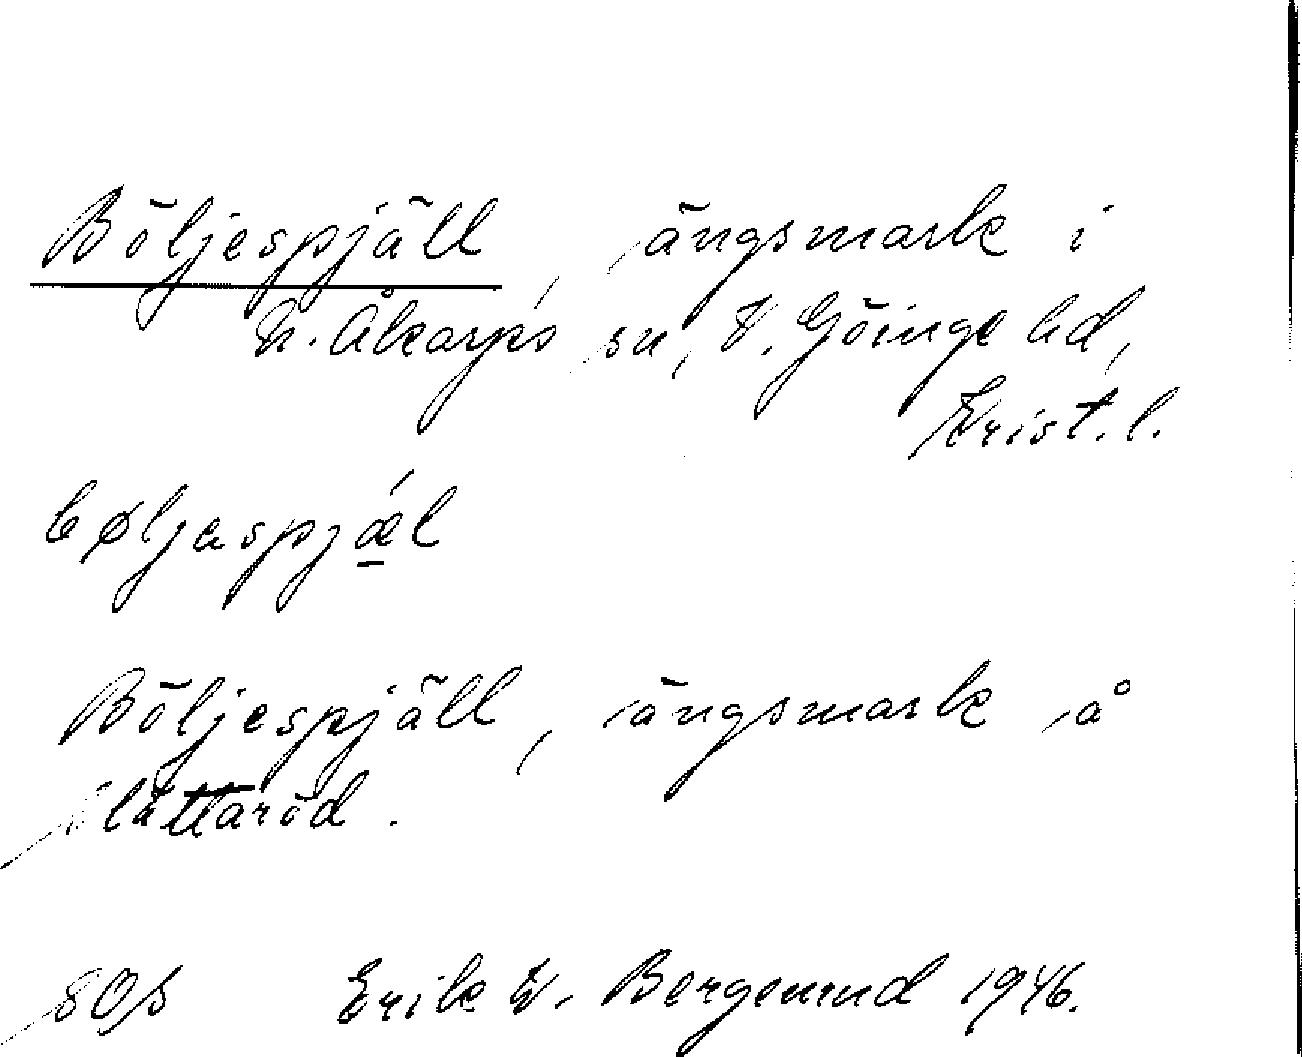 Böljespjäll, ängsmark i
N. Åkarps sn, V. Göinge hd,
Krist. l.
bøljaspjǽl
Böljespjäll, ängsmark å
Slättaröd.
SOS Erik W. Bergenund 1946.